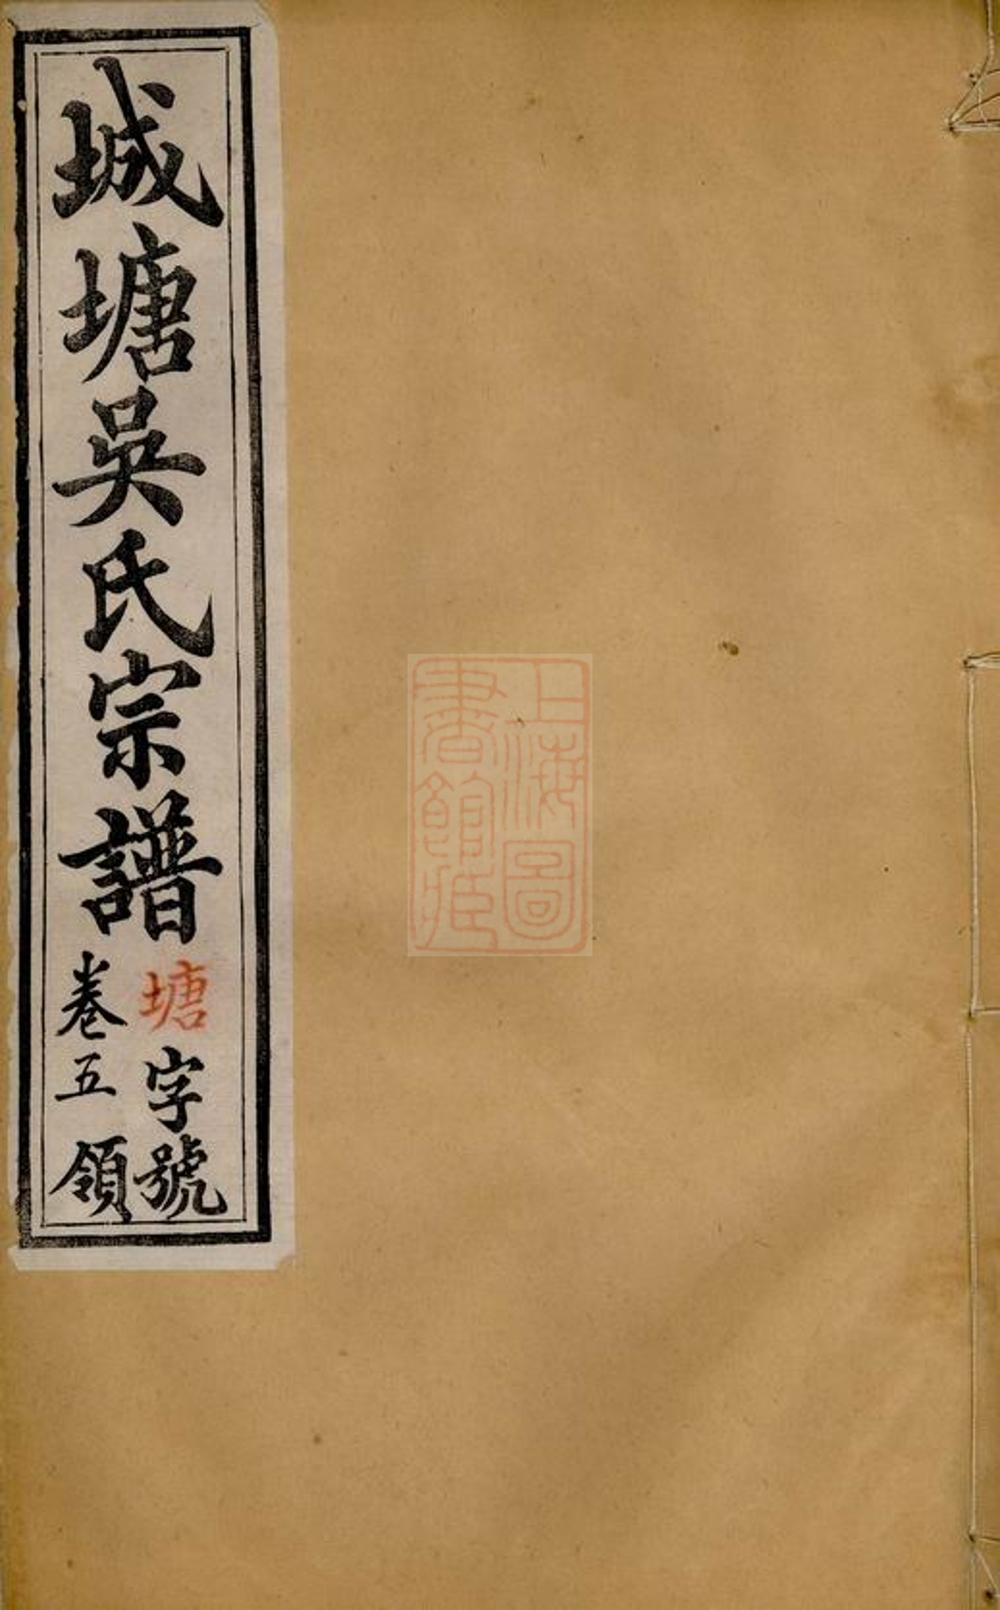 城塘吳氏宗譜
塘字號
卷五 領
上海圖
書館藏